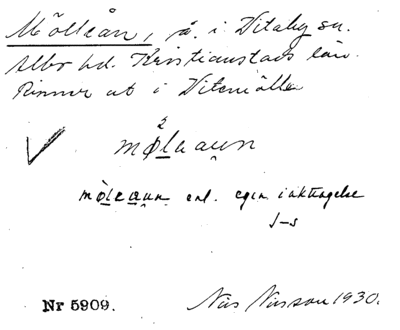 Mölleån, å. i Vitaby sn.
Albo hd. Kristianstads län.
Rinner ut i Vitemölla
mø̀lnaun
enl. egen iakttagelse
J–s
Nr 5909. Nils Nilsson 1930.